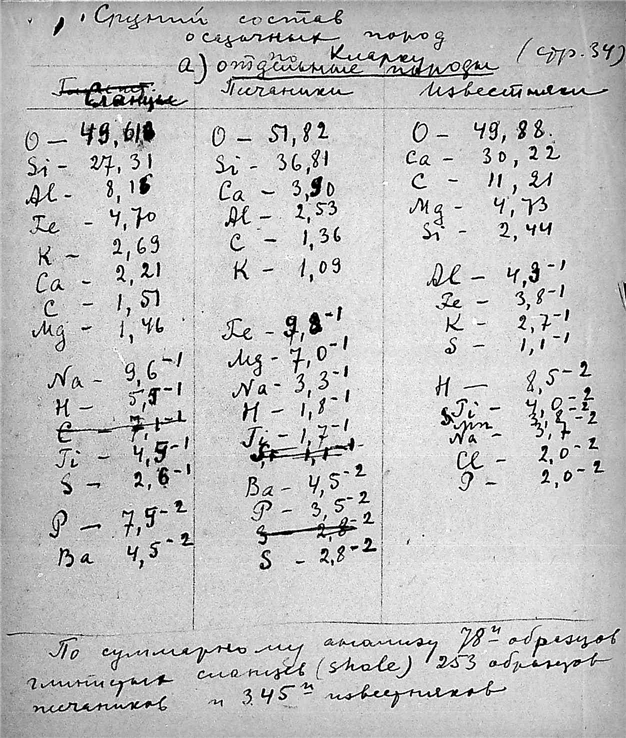 Средний состав
осадочных пород
по Кларку
а) отдельные породы (стр. 34)
Сланцы Песчаники Известняки
O — 49,61 O — 51,82 O — 49,88.
Si — 27,31 Si — 36,81 Ca — 30,22
Al — 8,1 Ca — 3,90 C — 11,21
Fe — 4,70 Al — 2,53 Mg — 4,73
K — 2,69 C — 1,36 Si — 2,44
Ca — 2,21 K — 1,09 Al — 4,3⁻¹
C — 1,51 Fe — 3,8⁻¹
Mg — 1,46 Fe — 9,8⁻¹ K — 2,7⁻¹
Mg — 7,0⁻¹ S — 1,1⁻¹
Na — 9,6⁻¹ Na — 3,3⁻¹ H — 8,5⁻²
H — 5,5⁻¹ H — 1,8⁻¹ Ti — 4,0⁻²
C — 7,1⁻¹ Ti — 1,7⁻¹ Mn 3,8⁻²
Ti — 4,5⁻¹ S — 1,1⁻¹ Na — 3,7⁻²
S — 2,6⁻¹ Ba — 4,5⁻² Cl — 2,0⁻²
P — 3,5⁻² P — 2,0⁻²
P — 7,5⁻² S — 2,8⁻²
Ba 4,5⁻² S — 2,8⁻²
По суммарному анализу 78ᴴ образцов
глинистых сланцев (shale) 253 образцов
песчаников и 345ᴴ известняков